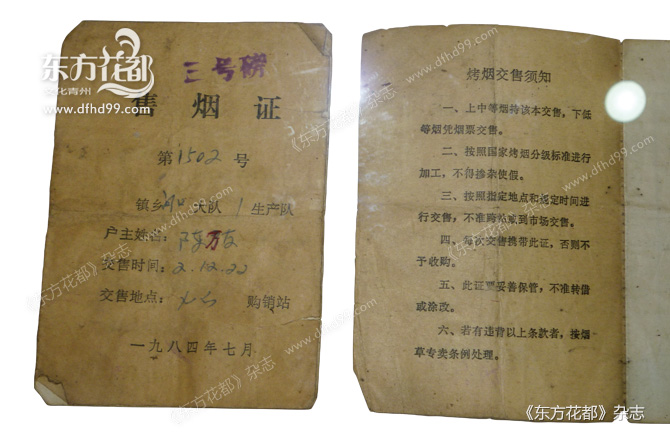 东方花都
文化青州
www.dfhd99.com
三号磅
售烟证
第1502号
镇乡 大队 1 生产队
户主姓名：陈万友
交售时间：2.12.22
交售地点： 购销站
一九八四年七月
烤烟交售须知
一、上中等烟持该本交售，下低
等烟凭烟票交售。
二、按照国家烤烟分级标准进行
加工，不得掺杂使假。
三、按照指定地点和规定时间进
行交售，不准跨站或到市场交售。
四、每次交售携带此证，否则不
予收购。
五、此证要妥善保管，不准转借
或涂改。
六、若有违背以上条款者，按烟
草专卖条例处理。
《东方花都》杂志